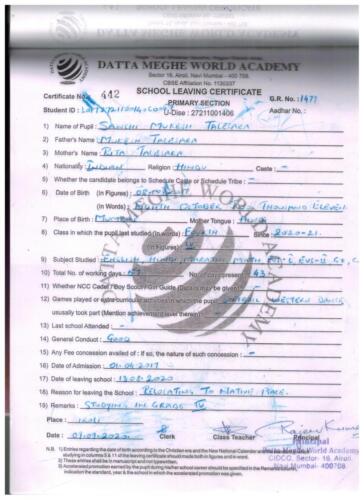 DATTA MEGHE WORLD ACADEMY
Sector 16, Airoli, Navi Mumbai - 400 708.
CBSE Affiliation No. 1130337
Certificate No. 442 SCHOOL LEAVING CERTIFICATE G.R. No. : 1477
PRIMARY SECTION
Student ID : U-Dise : 27211001406 Aadhar No. :
1) Name of Pupil : SANCHI MUKESH TALEJARA
2) Father's Name : MUKESH TALEJARA
3) Mother's Name : RITA TALEJARA
4) Nationality INDIAN Religion HINDU Caste : -
5) Whether the candidate belongs to Schedule Caste or Schedule Tribe : -
6) Date of Birth (in Figures) :
(in Words) : OCTOBER THOUSAND ELEVEN
7) Place of Birth : Mother Tongue :
8) Class in which the pupil last studied (in Words) : FOURTH Since : 2020-21.
(in Figures) : IV
9) Subject Studied : ENGLISH, HINDI, MARATHI, MATH
10) Total No. of working days : No. of days present : 43
11) Whether NCC Cadet / Boy Scout / Girl Guide (Details may be given) : -
12) Games played or extra curricular activities in which the pupil WESTERN DANCE
usually took part (Mention achievement level therein) :
13) Last school Attended : -
14) General Conduct : GOOD
15) Any Fee concession availed of : If so, the nature of such concession : -
16) Date of Admission : 01.04.2017
17) Date of leaving school : 13.08.2020
18) Reason for leaving the School : RELOCATING TO NATIVE PLACE.
19) Remarks : STUDYING IN GRADE IV
Place :
Date : Clerk Class Teacher Principal
Principal
Datta Meghe World Academy
CIDCO, Sector 16, Airoli,
Navi Mumbai- 400 708
N.B. 1) Entries regarding the date of birth according to the Christian era and the New National Calendar
studying in columns 8 & 11 of the leaving certificate should be made both in figures and in word.
2) These entries shall be in manuscript and not typewritten.
3) Accelerated promotion earned by the pupil during his/her school career should be specified in the Remarks
indication the standard, year & the school in which the accelerated promotion was earned.